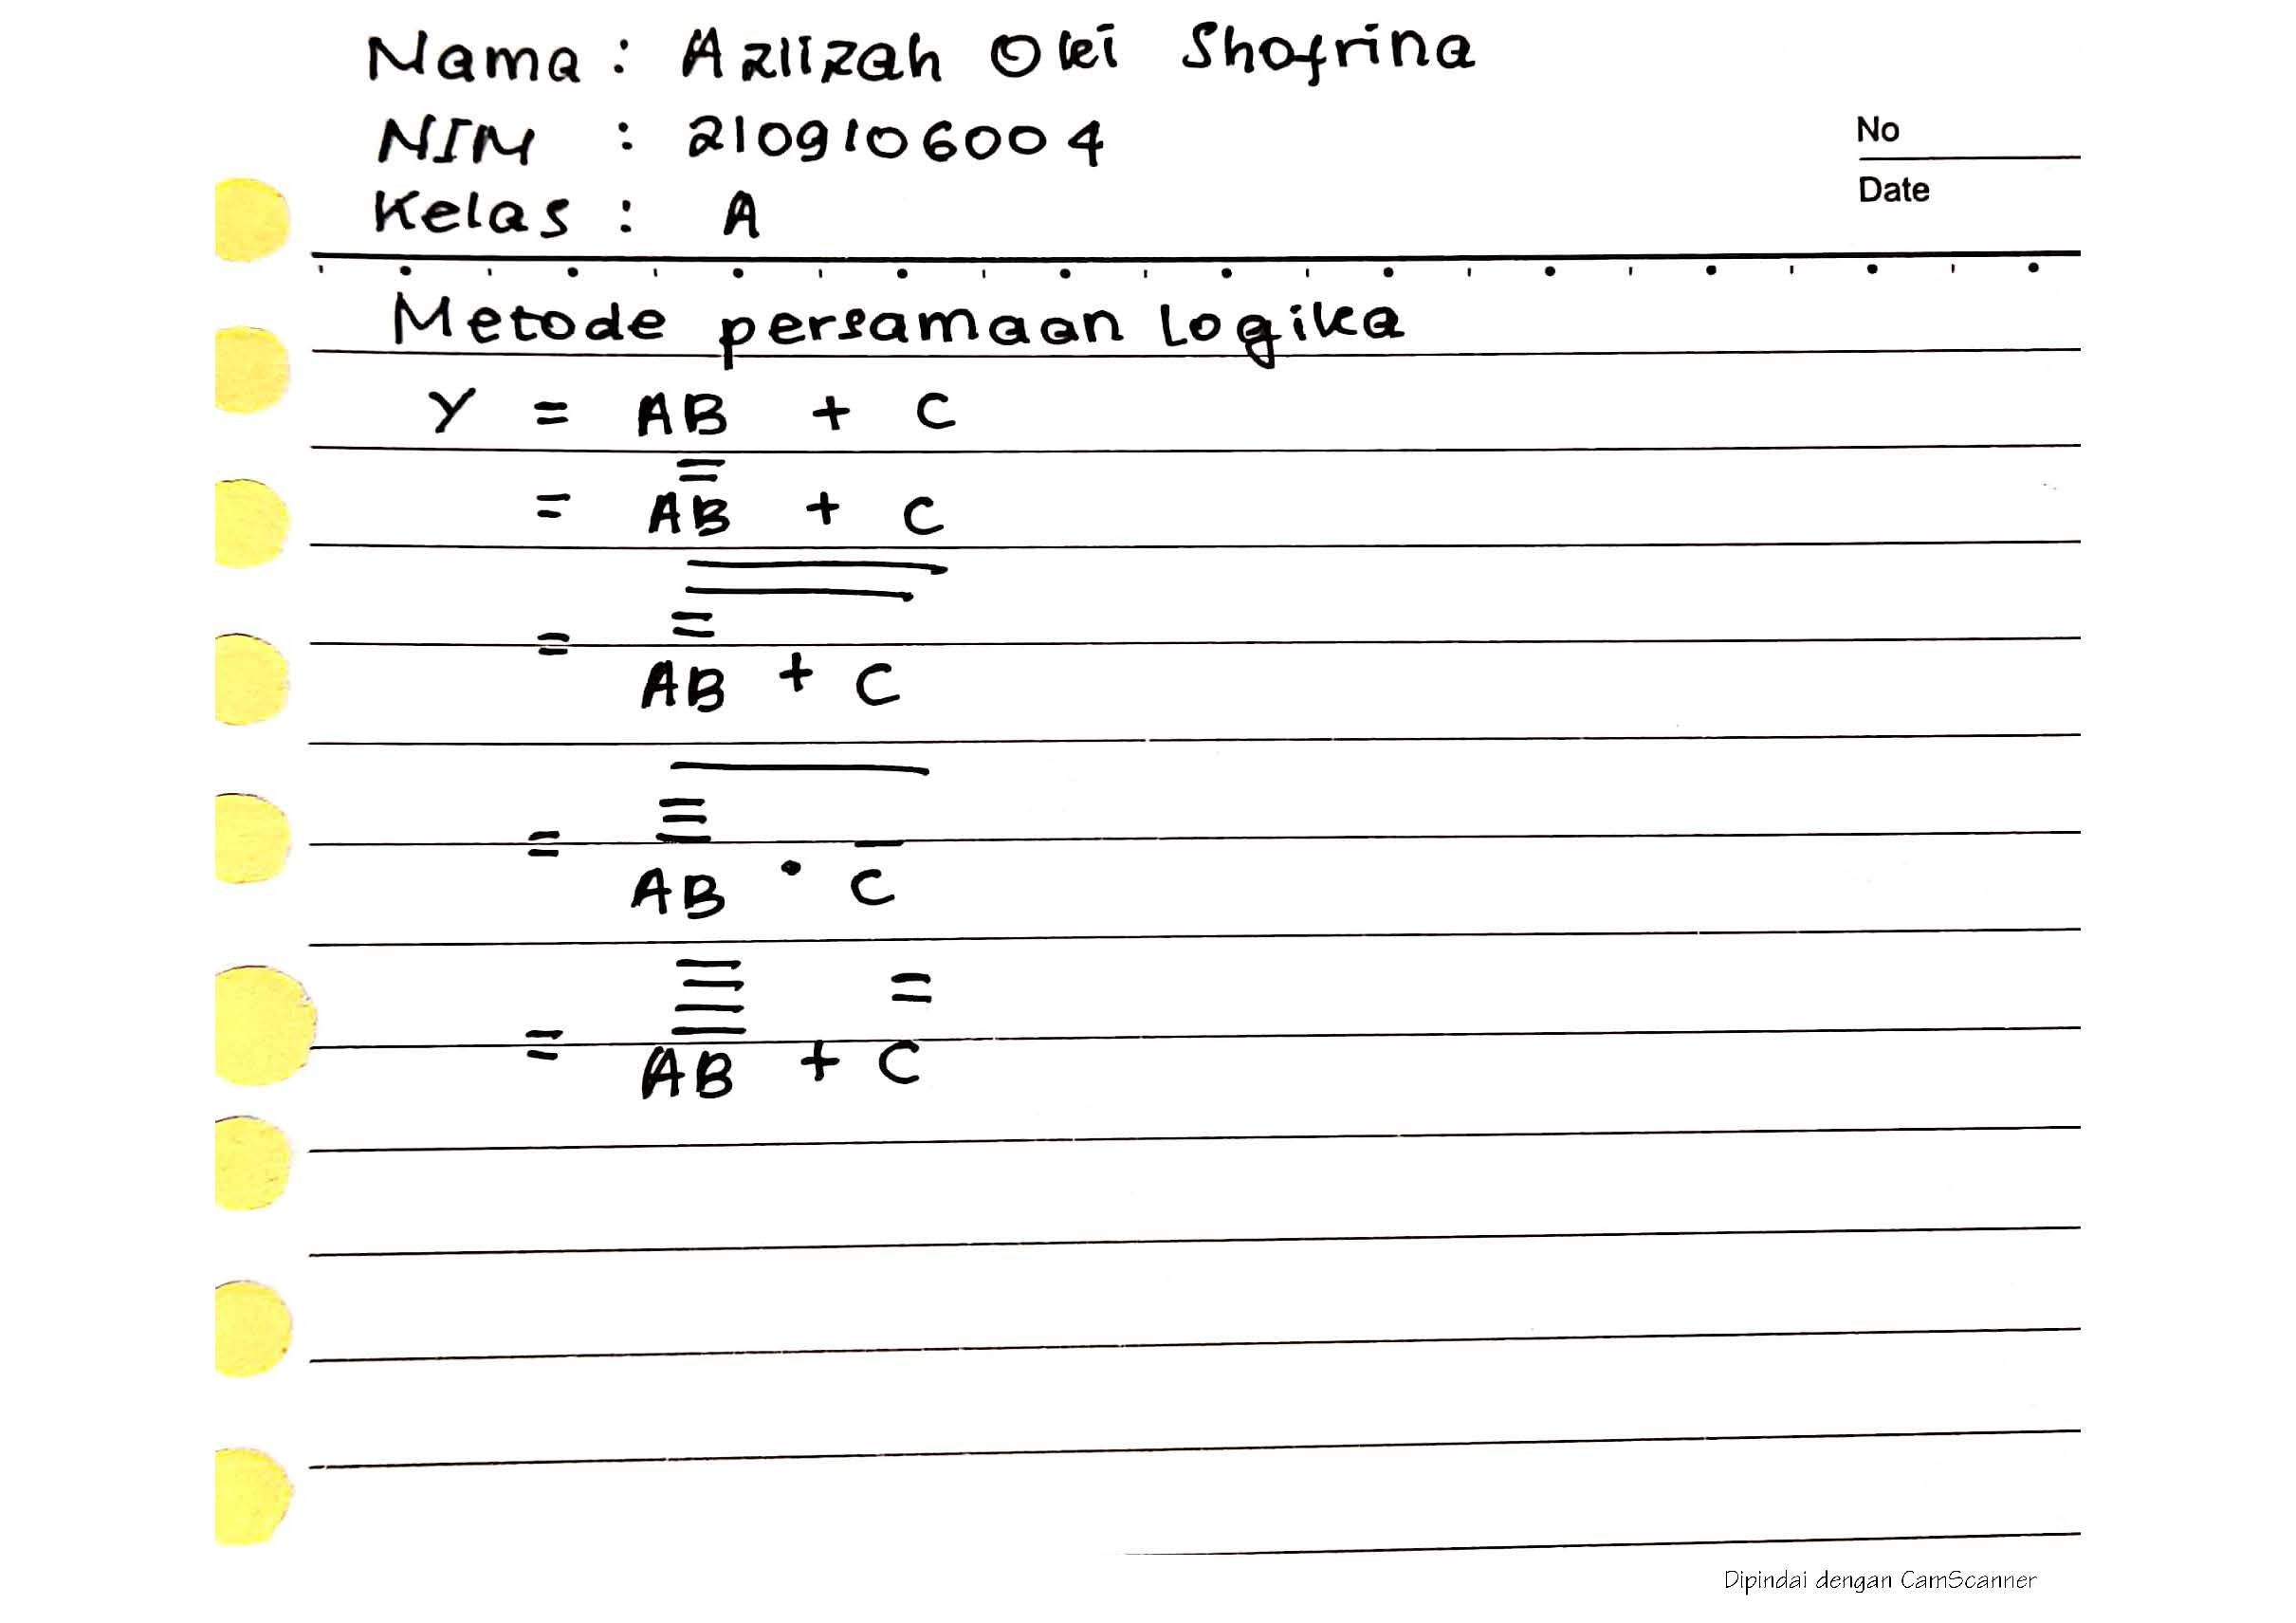 Nama : Azlizah Oki Shofrina
NIM : 2109106004
No
Date
Kelas : A
Metode persamaan logika
Y = AB + C
= A̿B̿ + C
= \overline{\overline{\overline{\overline{AB}} + C}}
= \overline{\overline{\overline{\overline{AB}}} · \overline{C}}
= \overline{\overline{\overline{\overline{AB}}}} + \overline{\overline{C}}
Dipindai dengan CamScanner